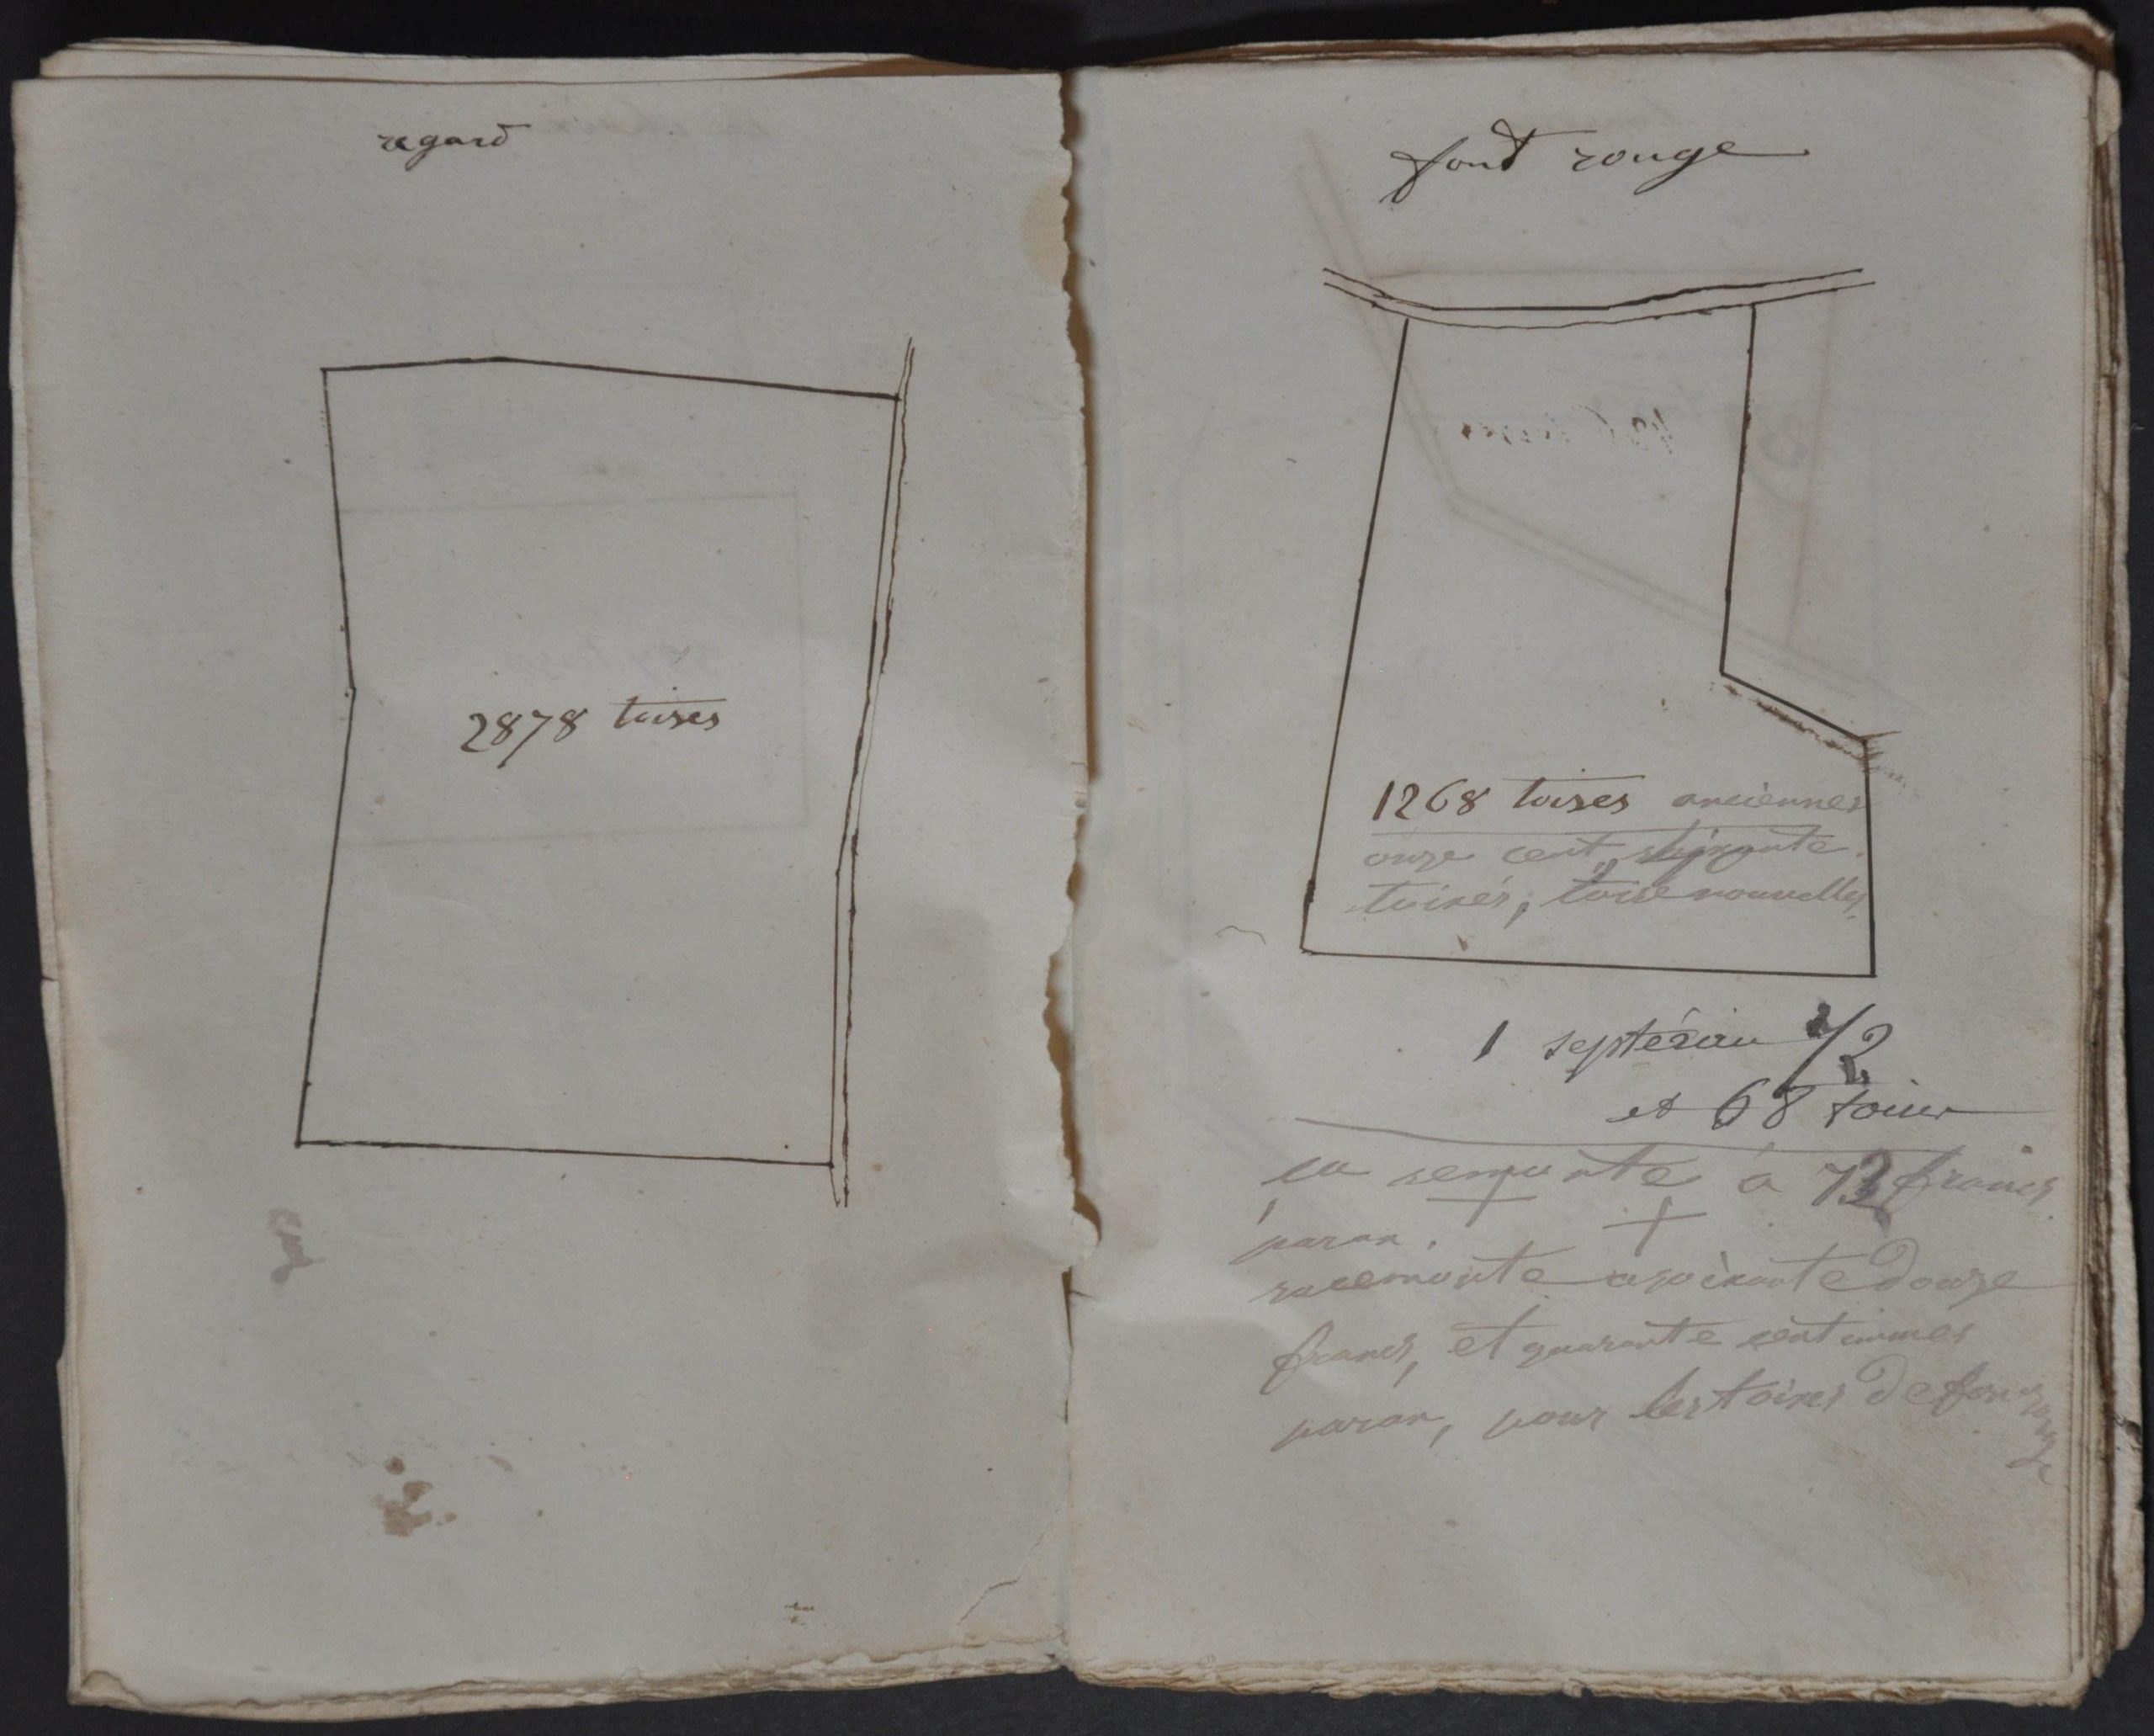 regard
2878 toises
font rouge
1268 toises anciennes
onze cent soixante
toises, toise nouvelles
1 septérau 1/2
et 68 toises
sa remonte à 72 francs
paran.
sacemonte asoixante douze
francs, et quarante sentimmes
paran, pour les toises de fon rouge